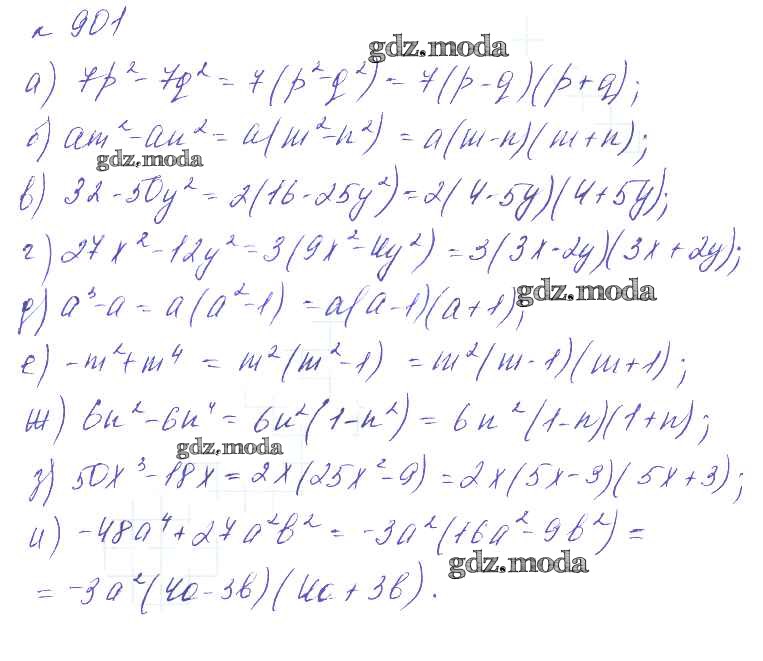 № 901
gdz.moda
а) 7p² - 7q² = 7(p² - q²) = 7(p - q)(p + q);
б) am² - an² = a(m² - n²) = a(m - n)(m + n);
gdz.moda
в) 32 - 50y² = 2(16 - 25y²) = 2(4 - 5y)(4 + 5y);
г) 27x² - 12y² = 3(9x² - 4y²) = 3(3x - 2y)(3x + 2y);
д) a³ - a = a(a² - 1) = a(a - 1)(a + 1);
gdz.moda
е) -m² + m⁴ = m²(m² - 1) = m²(m - 1)(m + 1);
ж) 6n² - 6n⁴ = 6n²(1 - n²) = 6n²(1 - n)(1 + n);
gdz.moda
з) 50x³ - 18x = 2x(25x² - 9) = 2x(5x - 3)(5x + 3);
и) -48a⁴ + 27a²b² = -3a²(16a² - 9b²) =
gdz.moda
= -3a²(4a - 3b)(4a + 3b).